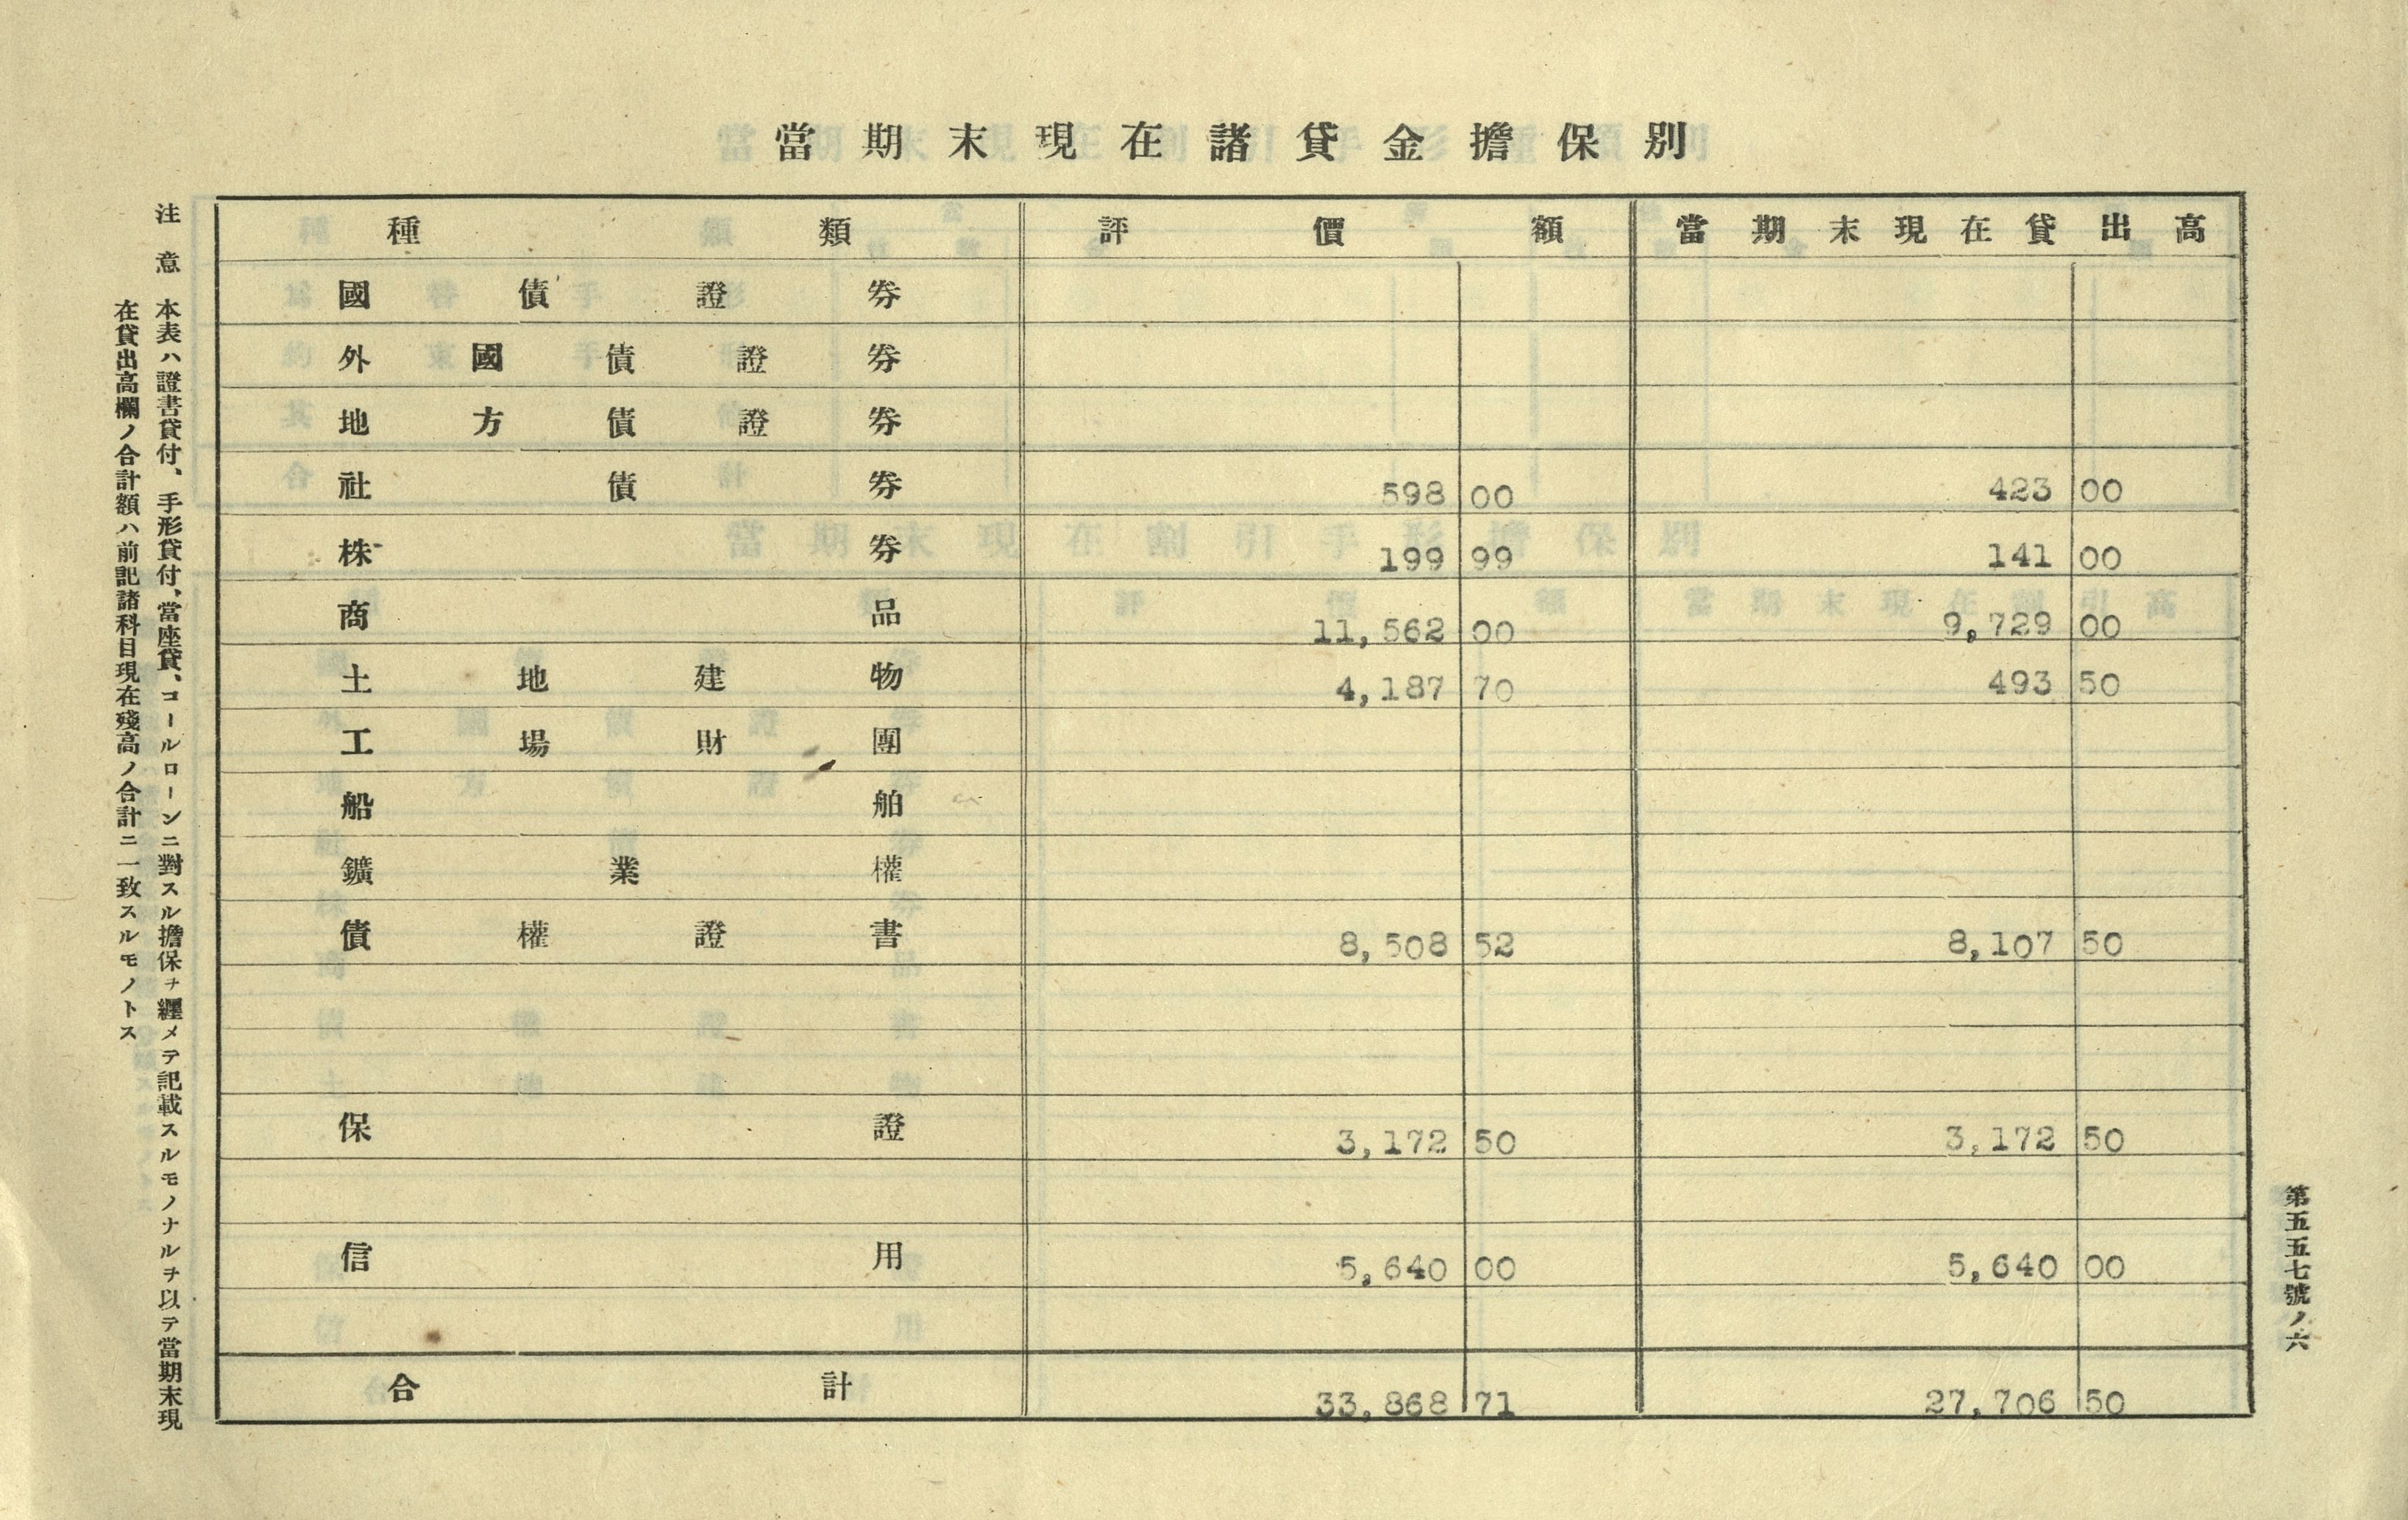 當期末現在諸貸金擔保別
種類 評價額 當期末現在貸出高
國債證券
外國債證券
地方債證券
社債券 598 00 423 00
株券 199 99 141 00
商品 11,562 00 9,729 00
土地建物 4,187 70 493 50
工場財團
船舶
鑛業權
債權證書 8,508 52 8,107 50
保證 3,172 50 3,172 50
信用 5,640 00 5,640 00
合計 33,868 71 27,706 50
注意 本表ハ證書貸付、手形貸付、當座貸、コールローンニ對スル擔保ヲ纒メテ記載スルモノナルヲ以テ當期末現
在貸出高欄ノ合計額ハ前記諸科目現在殘高ノ合計ニ一致スルモノトス
第五五七號ノ六